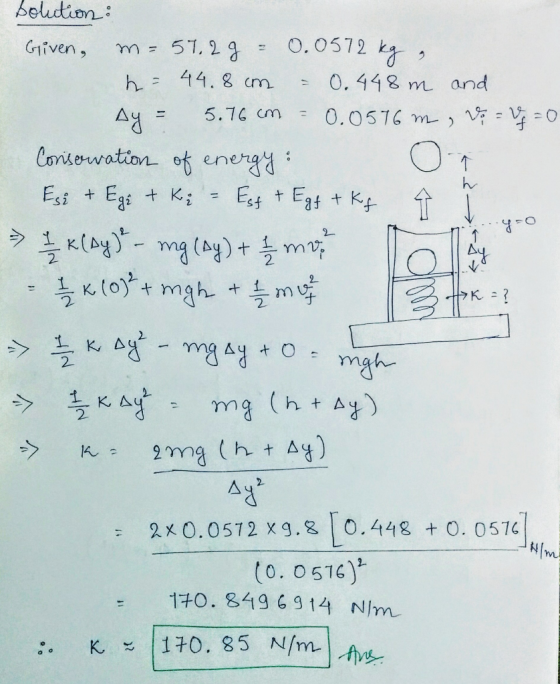 Solution:
Given, m = 57.2 g = 0.0572 kg,
h = 44.8 cm = 0.448 m and
Δy = 5.76 cm = 0.0576 m, vᵢ = v_f = 0
Conservation of energy:
E_si + E_gi + K_i = E_sf + E_gf + K_f
⇒ 1/2 K(Δy)² - mg(Δy) + 1/2 mvᵢ²
= 1/2 K(0)² + mgh + 1/2 mv_f²
h
y=0
Δy
→K = ?
⇒ 1/2 K Δy² - mgΔy + 0 = mgh
⇒ 1/2 K Δy² = mg (h + Δy)
⇒ K = 2mg (h + Δy) / Δy²
= 2×0.0572×9.8 [0.448 + 0.0576] / (0.0576)² N/m
= 170.8496914 N/m
∴ K ≈ 170.85 N/m Ans.